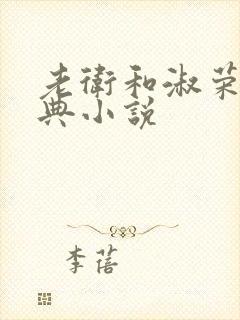 老衛和淑荣
典小說
李蓓